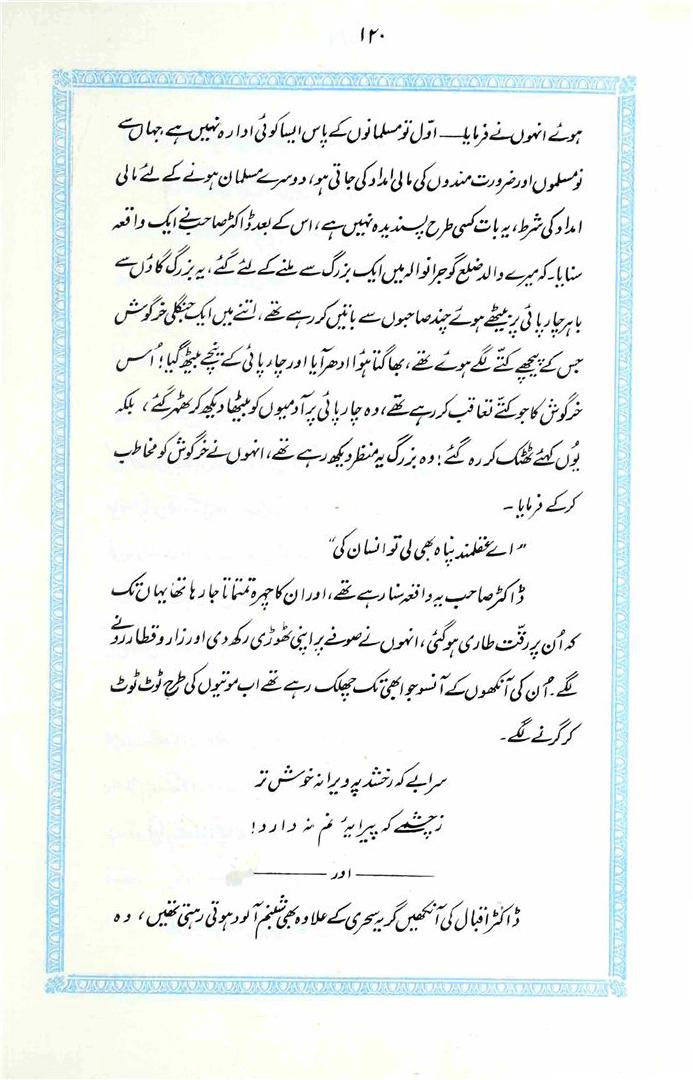 ۱۲۰
ہوئے انہوں نے فرمایا — اوّل تو مسلمانوں کے پاس ایسا کوئی ادارہ نہیں ہے جہاں سے
نو مسلموں اور ضرورت مندوں کی مالی امداد کی جاتی ہو، دوسرے مسلمان ہونے کے لئے مالی
امداد کی شرط، یہ بات کسی طرح پسندیدہ نہیں ہے، اس کے بعد ڈاکٹر صاحب نے ایک واقعہ
سنایا۔ کہ میرے والد ضلع گوجرانوالہ میں ایک بزرگ سے ملنے کے لئے گئے، یہ بزرگ گاؤں سے
باہر چارپائی پر بیٹھے ہوئے چند صاحبوں سے باتیں کر رہے تھے، اتنے میں ایک جنگلی خرگوش
جس کے پیچھے کتّے لگے ہوئے تھے، بھاگتا ہوا ادھر آیا اور چارپائی کے نیچے بیٹھ گیا؛ اُس
خرگوش کا جو کتّے تعاقب کر رہے تھے، وہ چارپائی پر آدمیوں کو بیٹھا دیکھ کر ٹھہر گئے، بلکہ
یُوں کہئے ٹھٹک کر رہ گئے؛ وہ بزرگ یہ منظر دیکھ رہے تھے، انہوں نے خرگوش کو مخاطب
کر کے فرمایا۔
"اے عقلمند پناہ بھی لی تو انسان کی"
ڈاکٹر صاحب یہ واقعہ سنا رہے تھے، اور ان کا چہرہ تمتماتا جا رہا تھا یہاں تک
کہ اُن پر رقّت طاری ہو گئی، انہوں نے صوفے پر اپنی ٹھوڑی رکھ دی اور زار و قطار رونے
لگے۔ اُن کی آنکھوں کے آنسو جو ابھی تک چھلک رہے تھے اب موتیوں کی طرح ٹوٹ ٹوٹ
کر گرنے لگے۔
سرابے کہ رخشد بہ ویرانہ خوش تر
ز چشمے کہ پیرایۂ نم نہ دارد!
— اور —
ڈاکٹر اقبال کی آنکھیں گریہ سحری کے علاوہ بھی شبنم آلود ہوتی رہتی تھیں، وہ